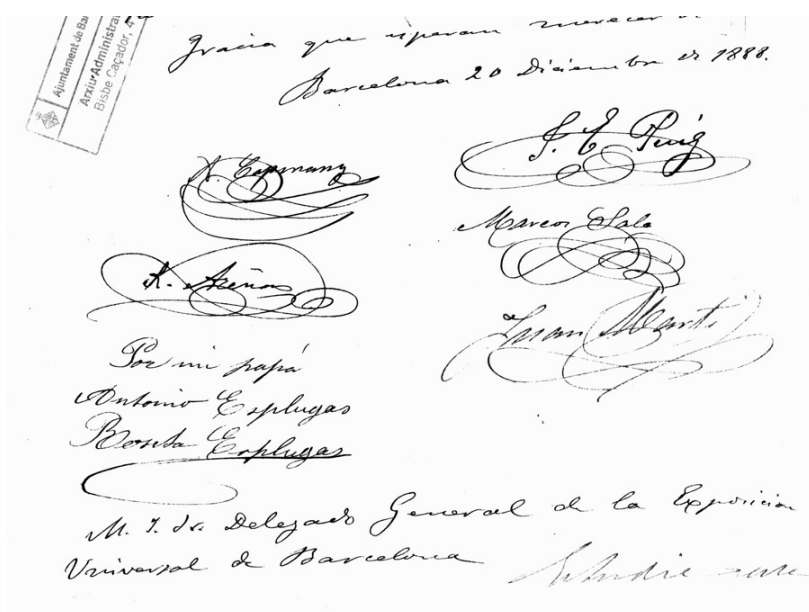 Ajuntament de Bar
Arxiu Administrat
Bisbe Caçador, 4
Gracia que esperan merecer
Barcelona 20 Diciembre de 1888.
J. E. Puig
Marcos Sala
Juan Marti
Por mi papá
Antonio Esplugas
Esplugas
M. I. Sr. Delegado General de la Exposicion
Universal de Barcelona